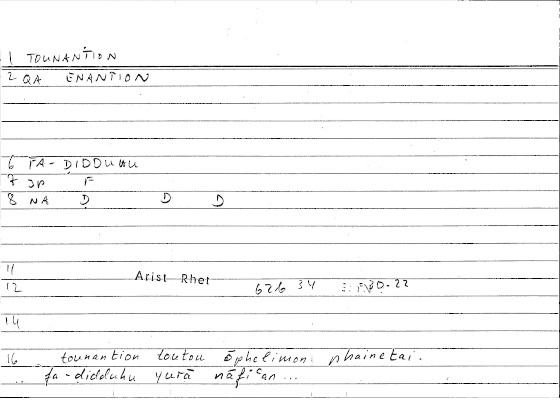 1 TOUNANTION
2 QA ENANTION
6 FA-ḌIDDUHU
7 F
8 NA Ḍ D Ḍ
11
Arist Rhet
12 62b 34 30.22
14
16 tounantion toutou ōphelimon phainetai.
fa-ḍidduhu yurā nāfiʿan ...